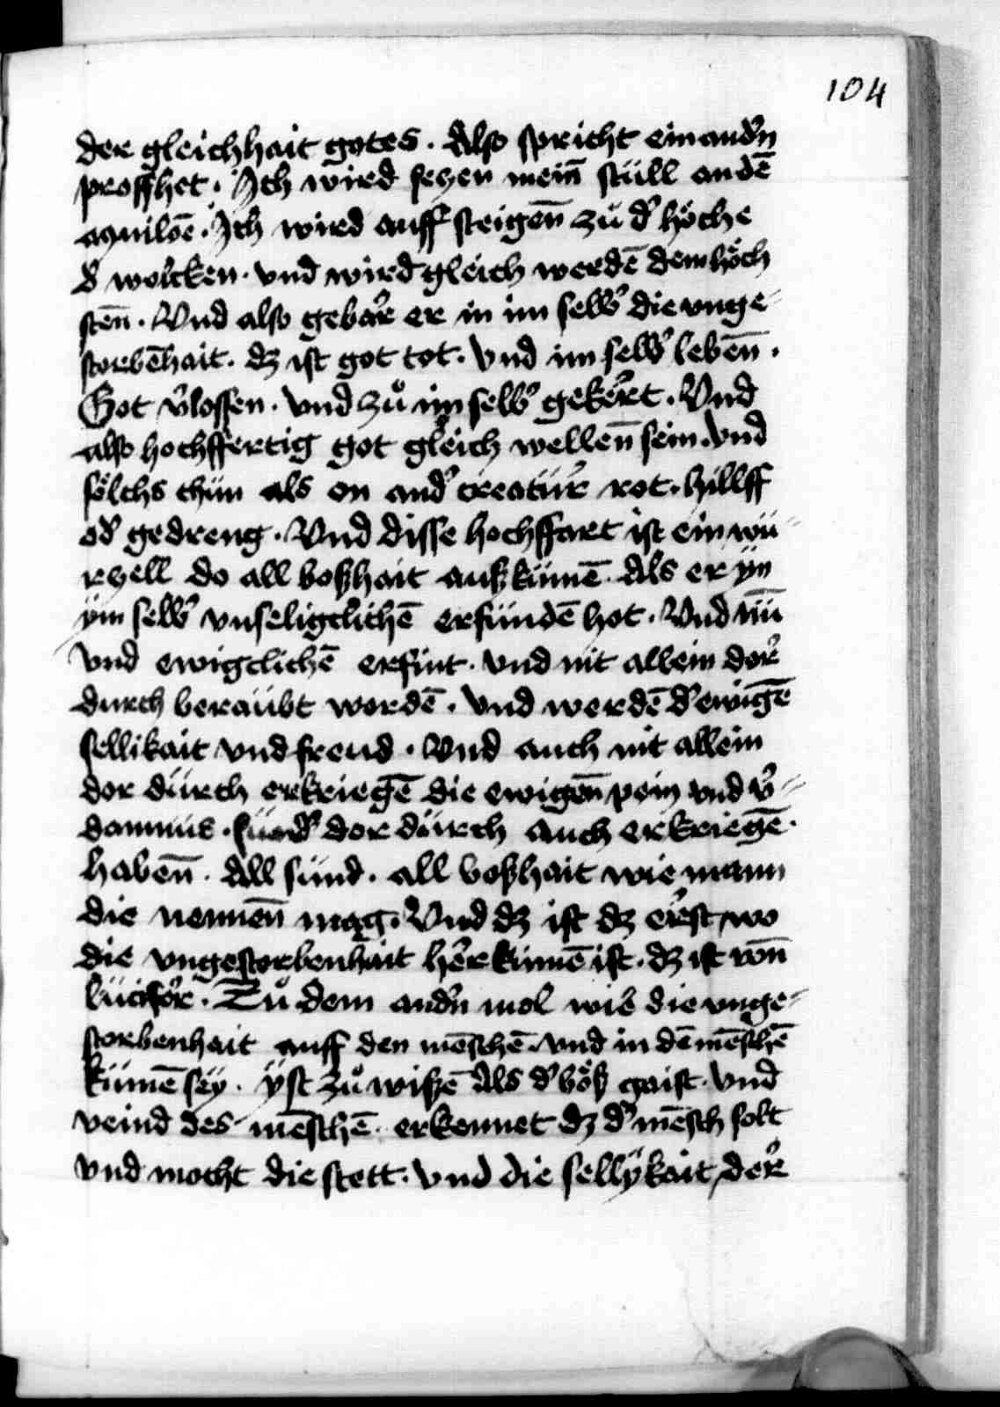 104
der gleichhait gotes. Also spricht ein andrn
proffhet. Ich wird seyen mein̄ stüll an dē
aquilōe. Ich wird auff steigen̄ zů dʼ höche
dʼ wolcken. vnd wird gleich werdē dem höch
sten̄. Vnd also gebarʼ er in im selbʼ die vnge-
storbēhait. dz ist got tot. Vnd im selbʼ leben̄.
Got vʼlossen. vnd zů im selbʼ gekert. Vnd
also hochffertig got gleich wellen̄ sein. vnd
sölchs thün als on andʼ creatur rot. hillff
odʼ gedreng. Vnd disse hochffart ist ein wu-
rczell do all boßhait auß kümē. Als er yn
ÿm selbʼ vnseligclichē erfundē hot. Vnd nū
vnd ewigclichē erfint. vnd nit allein dor
durch beraübt wordē. vnd werdē dʼ ewigē
sellikait vnd freud. Vnd auch nit allein
dor dürch erkriegē die ewigen̄ pein vnd vʼ-
damnüs. sundʼ dor dürch auch erkriegē.
haben̄. All sünd. all boßhait wie mann
die nennen̄ mag. Vnd dz ist dz erest wo
die vngestorbenhait her kümē ist. dz ist von̄
lucifer. Zů dem andrn mol wie die vnge-
storbenhait auff den mēschē vnd in dē mēschē
kümē seÿ. ÿst zů wißē Als dʼ böß gaist. vnd
veind des mēschē. erkennet dz dʼ mēsch solt
vnd mocht die stett. vnd die sellÿkait der